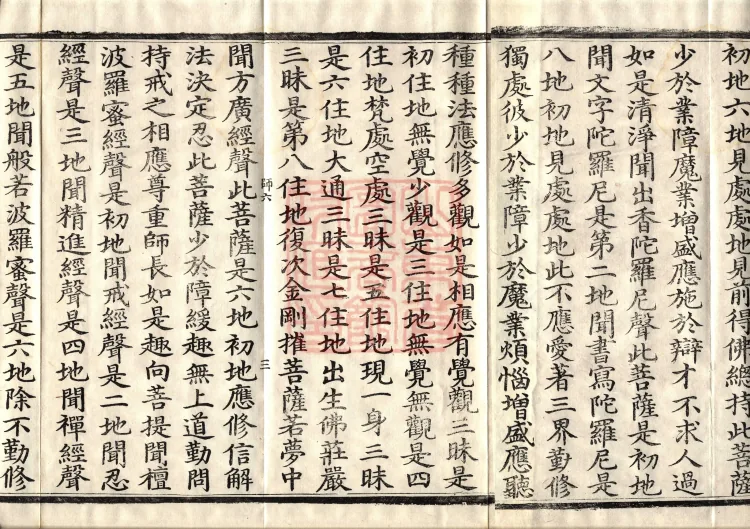 初地六地見處處地見前得佛總持此菩薩
少於業障魔業增盛應施於辯才不求人過
如是清淨聞出香陀羅尼聲此菩薩是初地
聞文字陀羅尼是第二地聞書寫陀羅尼是
八地初地見處處地此不應愛著三界勤修
獨處彼少於業障少於魔業煩惱增盛應聽
種種法應修多觀如是相應有覺觀三昧是
初住地無覺少觀是三住地無覺無觀是四
住地梵處空處三昧是五住地現一身三昧
是六住地大通三昧是七住地出生佛莊嚴
三昧是第八住地復次金剛摧菩薩若夢中
師六 三
聞方廣經聲此菩薩是六地初地應修信解
法決定忍此菩薩少於障緩趣無上道勤問
持戒之相應尊重師長如是趣向菩提聞檀
波羅蜜經聲是初地聞戒經聲是二地聞忍
經聲是三地聞精進經聲是四地聞禪經聲
是五地聞般若波羅蜜聲是六地除不勤修